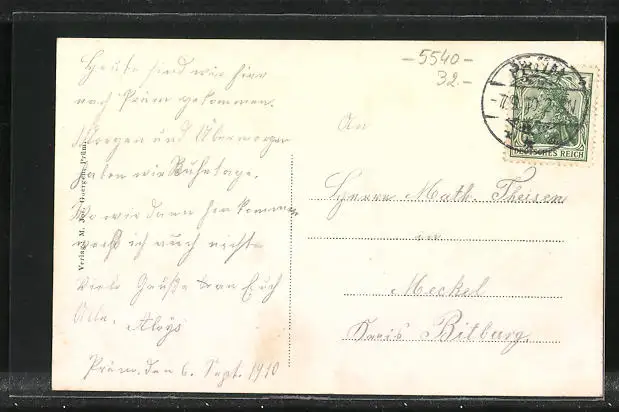 Heute sind wir hier
nach Prüm gekommen.
Morgen und Übermorgen
haben wir Ruhetage.
Wo wir dann hinkommen
weiß ich auch nicht.
Viele Grüße an Euch
Alle. Aloÿs
Prüm, den 6. Sept. 1910
Verlag M. Jos. Goergen, Prüm.
- 5540 -
32.-
DEUTSCHES REICH
An
Herrn Math. Theisen
in
Meckel
Kreis Bitburg.